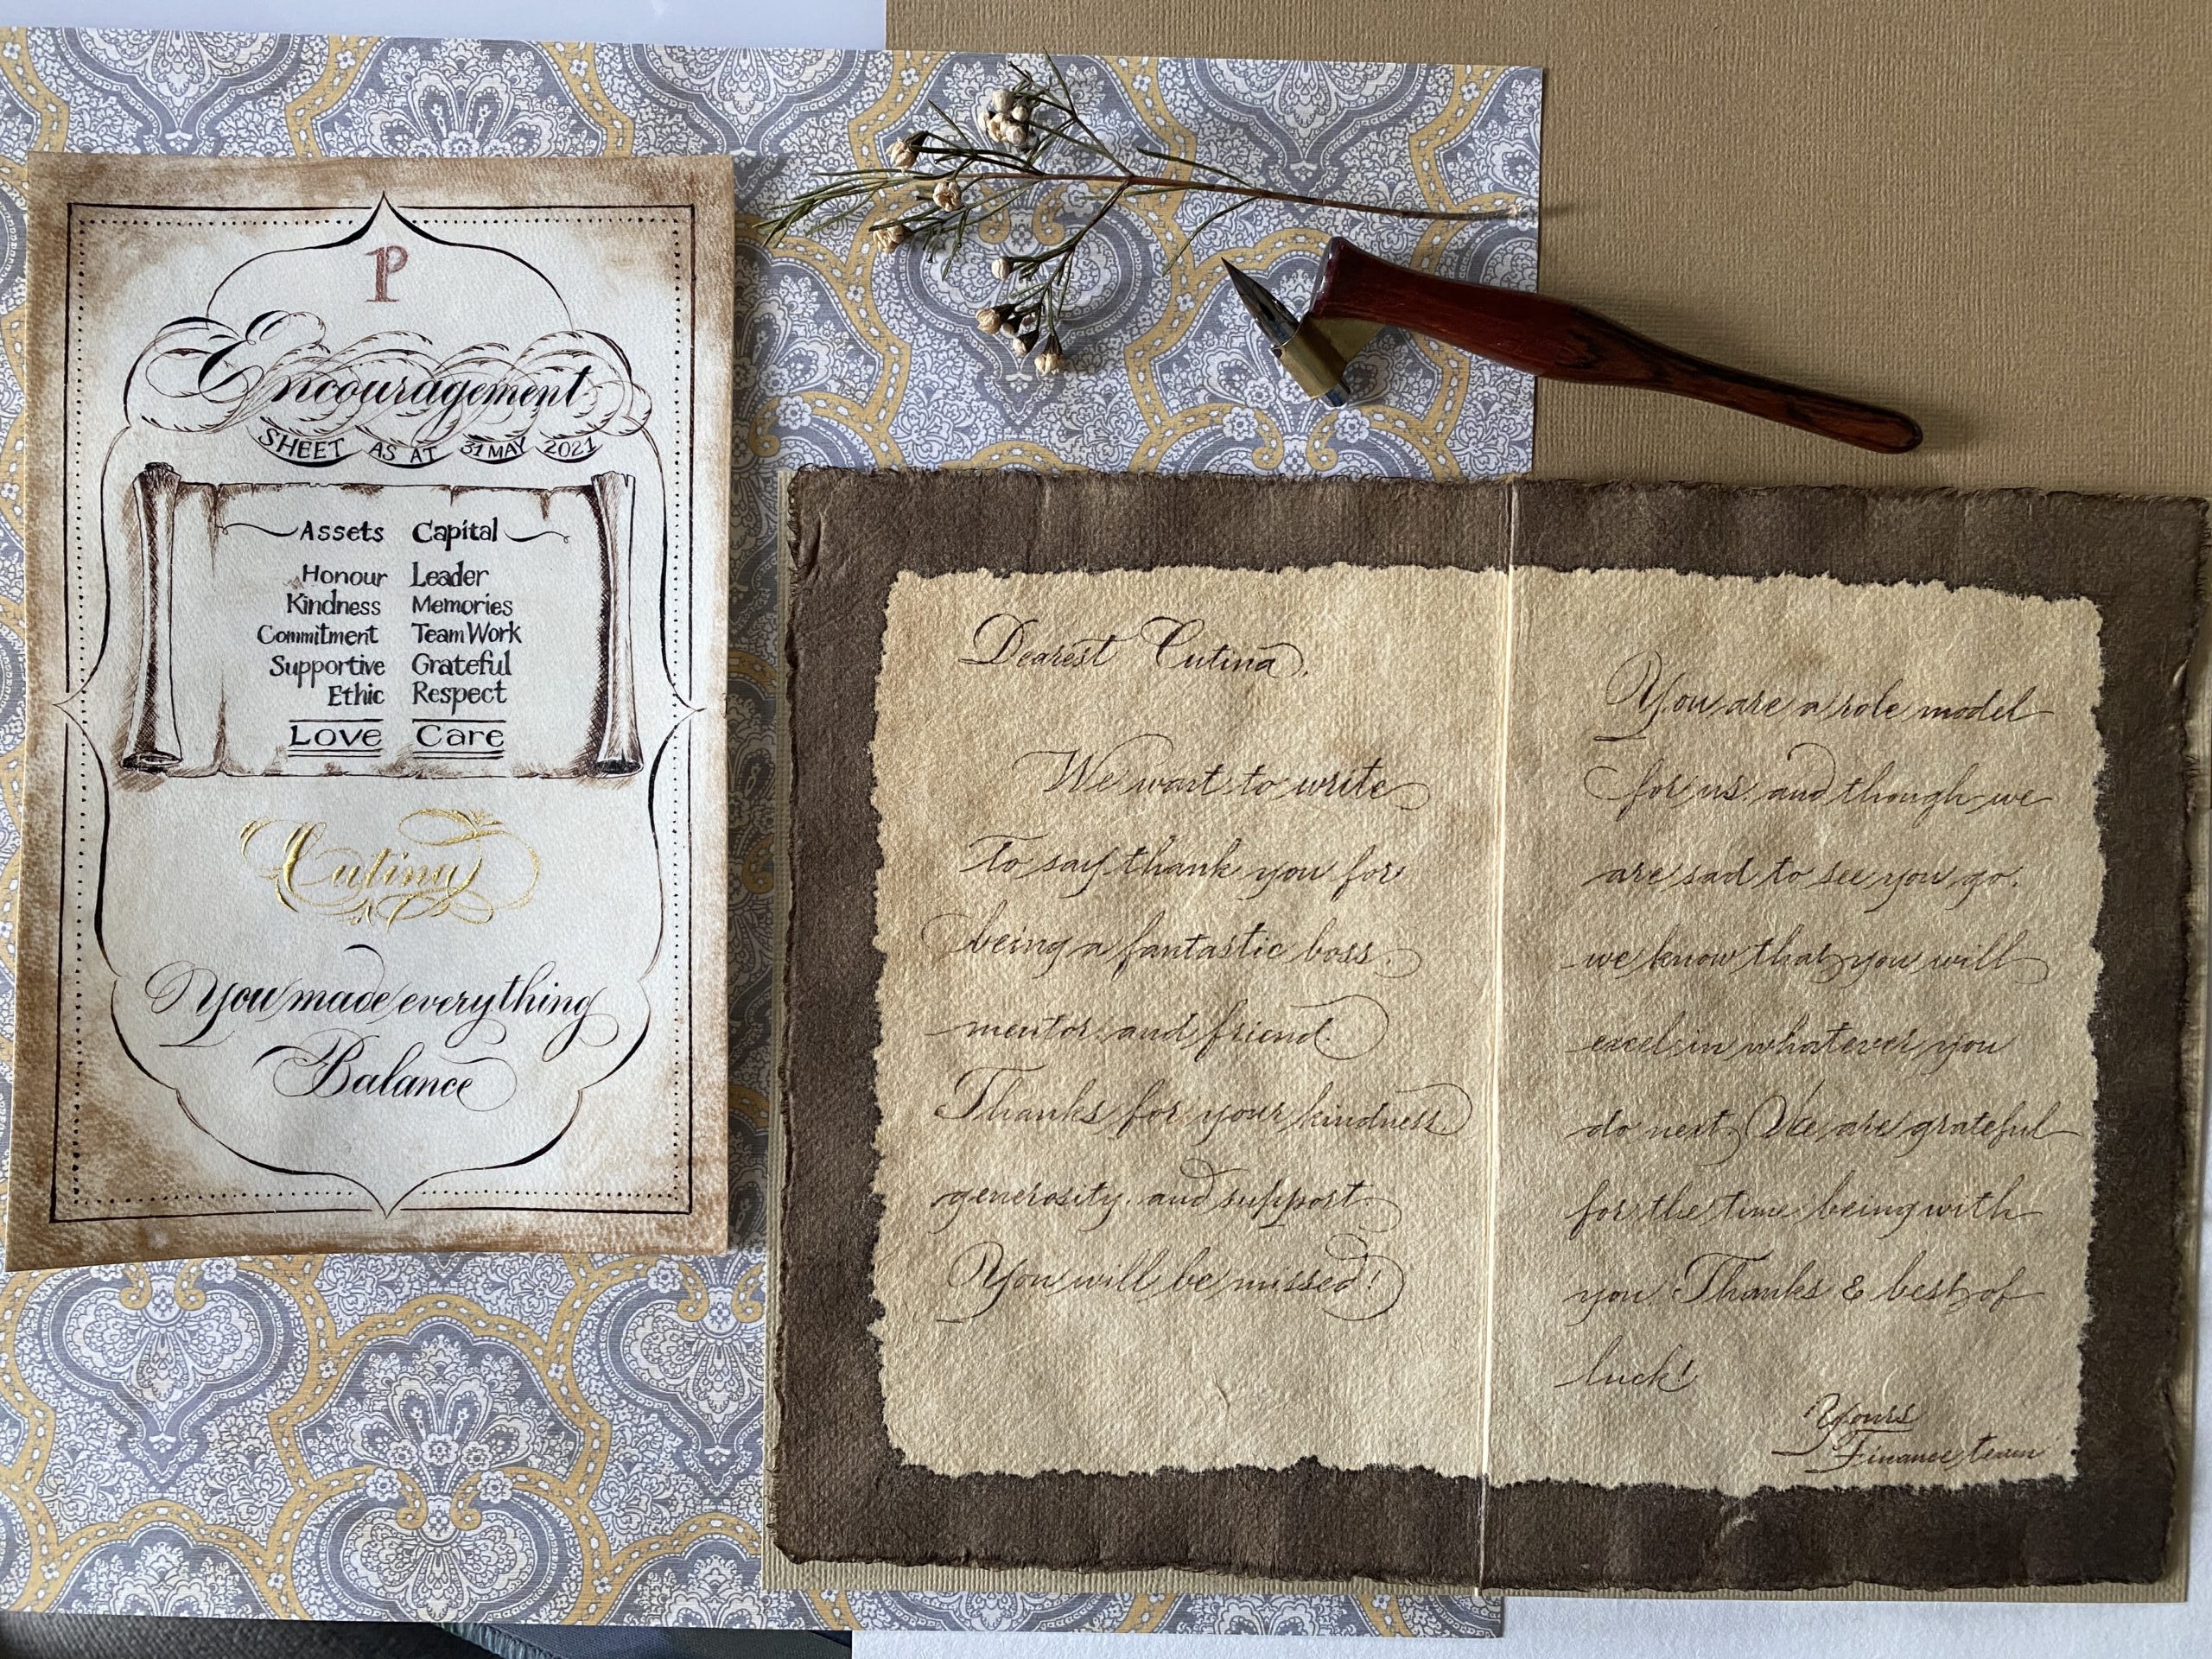 P
Encouragement
SHEET AS AT 31 MAY 2021
Assets Capital
Honour Leader
Kindness Memories
Commitment TeamWork
Supportive Grateful
Ethic Respect
Love Care
Cutina
You made everything
Balance
Dearest Cutina,
We want to write
to say thank you for
being a fantastic boss,
mentor, and friend.
Thanks for your kindness,
generosity, and support.
You will be missed!
You are a role model
for us, and though we
are sad to see you go,
we know that you will
excel in whatever you
do next. We are grateful
for the time being with
you. Thanks & best of
luck!
Yours
Finance team